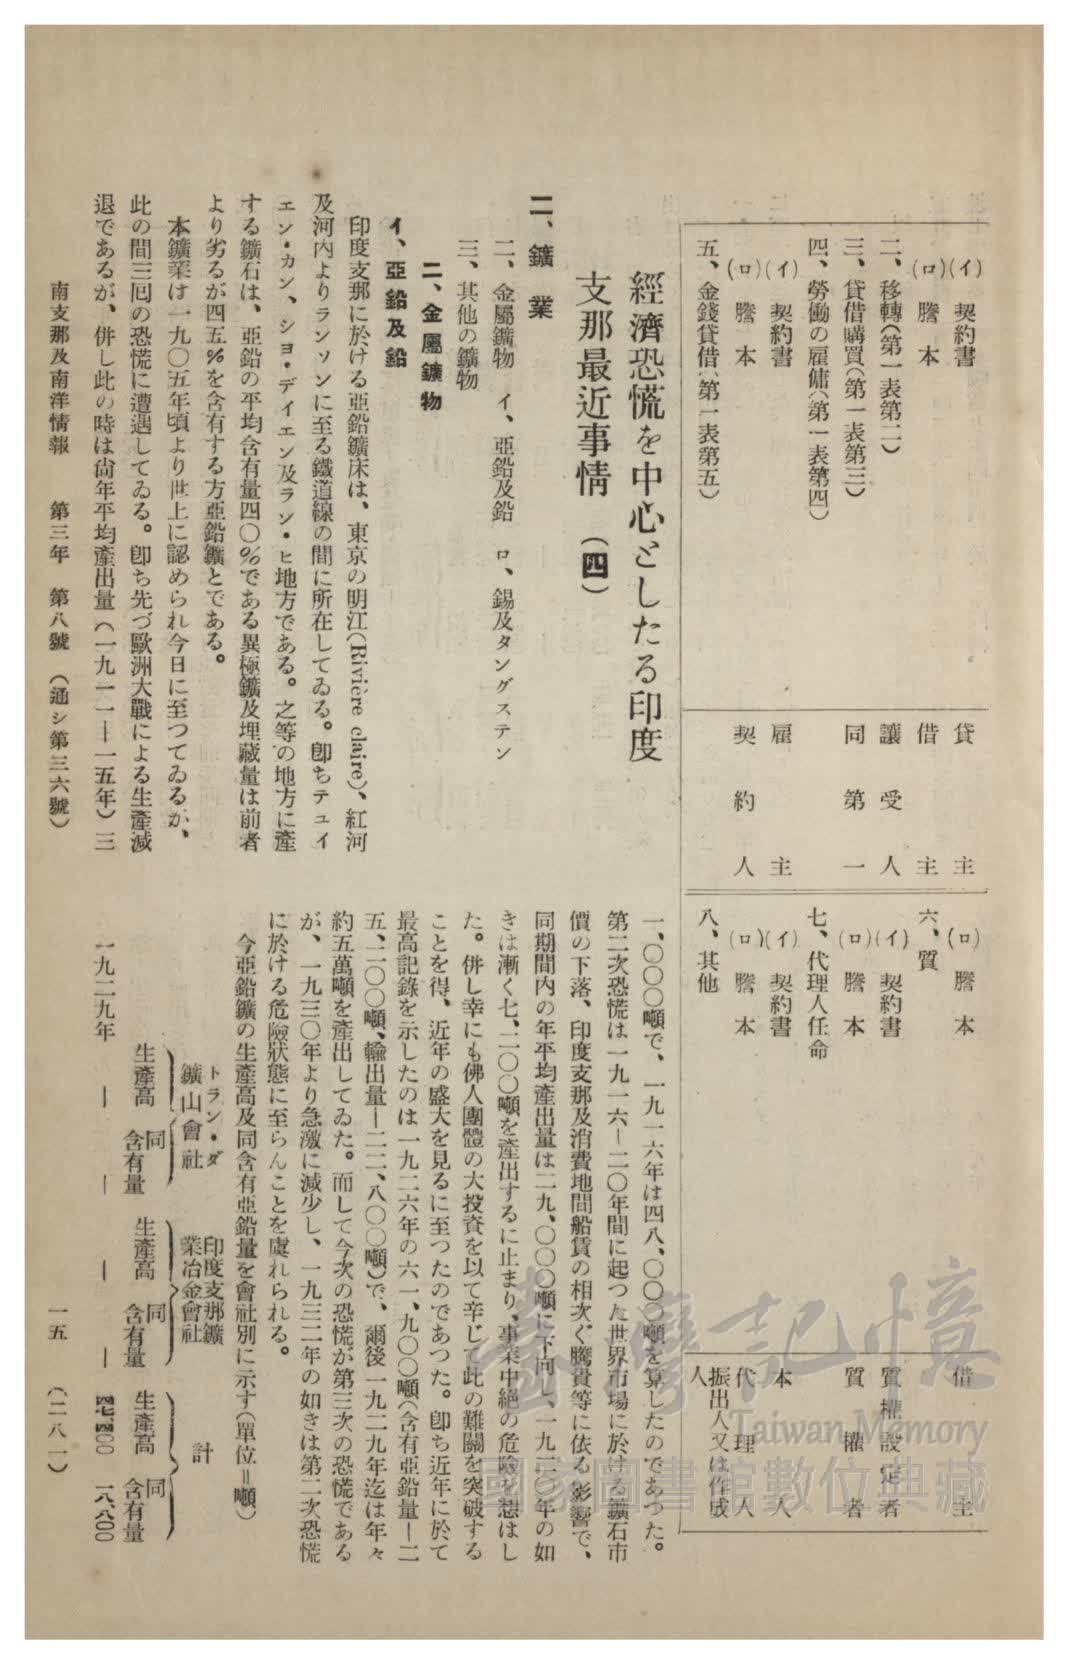 (イ) 契約書
(ロ) 謄本
二、移轉(第一表第二)
三、貸借購買(第一表第三)
四、勞働の雇傭(第一表第四)
(イ) 契約書
(ロ) 謄本
五、金錢貸借(第一表第五)
貸主
借主
讓受人
同第一
雇主
契約人
(ロ) 謄本
六、質
(イ) 契約書
(ロ) 謄本
七、代理人任命
(イ) 契約書
(ロ) 謄本
八、其他
借主
質權設定者
質權者
本人
代理人
振出人又は作成人
經濟恐慌を中心としたる印度
支那最近事情(四)
二、鑛業
二、金屬鑛物 イ、亞鉛及鉛 ロ、錫及タングステン
三、其他の鑛物
二、金屬鑛物
イ、亞鉛及鉛
印度支那に於ける亞鉛鑛床は、東京の明江(Riviére claire)、紅河
及河內よりランソンに至る鐵道線の間に所在してゐる。卽ちテュイ
エン・カン、ショ・デイエン及ラン・ヒ地方である。之等の地方に產
する鑛石は、亞鉛の平均含有量四〇%である異極鑛及埋藏量は前者
より劣るが四五%を含有する方亞鉛鑛とである。
本鑛業は一九〇五年頃より世上に認められ今日に至つてゐるが、
此の間三囘の恐慌に遭遇してゐる。卽ち先づ歐洲大戰による生產減
退であるが、併し此の時は尙年平均產出量(一九一一―一五年)三
一、〇〇〇噸で、一九一六年は四八、〇〇〇噸を算したのであつた。
第二次恐慌は一九一六―二〇年間に起つた世界市場に於ける鑛石市
價の下落、印度支那及消費地間船賃の相次ぐ騰貴等に依る影響で、
同期間內の年平均產出量は二九、〇〇〇噸に下向し、一九二〇年の如
きは漸く七、二〇〇噸を產出するに止まり、事業中絕の危險を想はし
た。併し幸にも佛人團體の大投資を以て辛じて此の難關を突破する
ことを得、近年の盛大を見るに至つたのであつた。卽ち近年に於て
最高記錄を示したのは一九二六年の六一、九〇〇噸(含有亞鉛量―二
五、二〇〇噸、輸出量―二二、八〇〇噸)で、爾後一九二九年迄は年々
約五萬噸を產出してゐた。而して今次の恐慌が第三次の恐慌である
が、一九三〇年より急激に減少し、一九三二年の如きは第二次恐慌
に於ける危險狀態に至らんことを虞れられる。
今亞鉛鑛の生產高及同含有亞鉛量を會社別に示す(單位=噸)
トラン・ダ鑛山會社
印度支那鑛業冶金會社
計
生產高 同含有量
生產高 同含有量
生產高 同含有量
一九二九年 ― ― ― ― 四七、四〇〇 一八、八〇〇
南支那及南洋情報 第三年 第八號 (通シ第三六號)
一五 (二八一)
臺灣記憶
Taiwan Memory
國家圖書館數位典藏